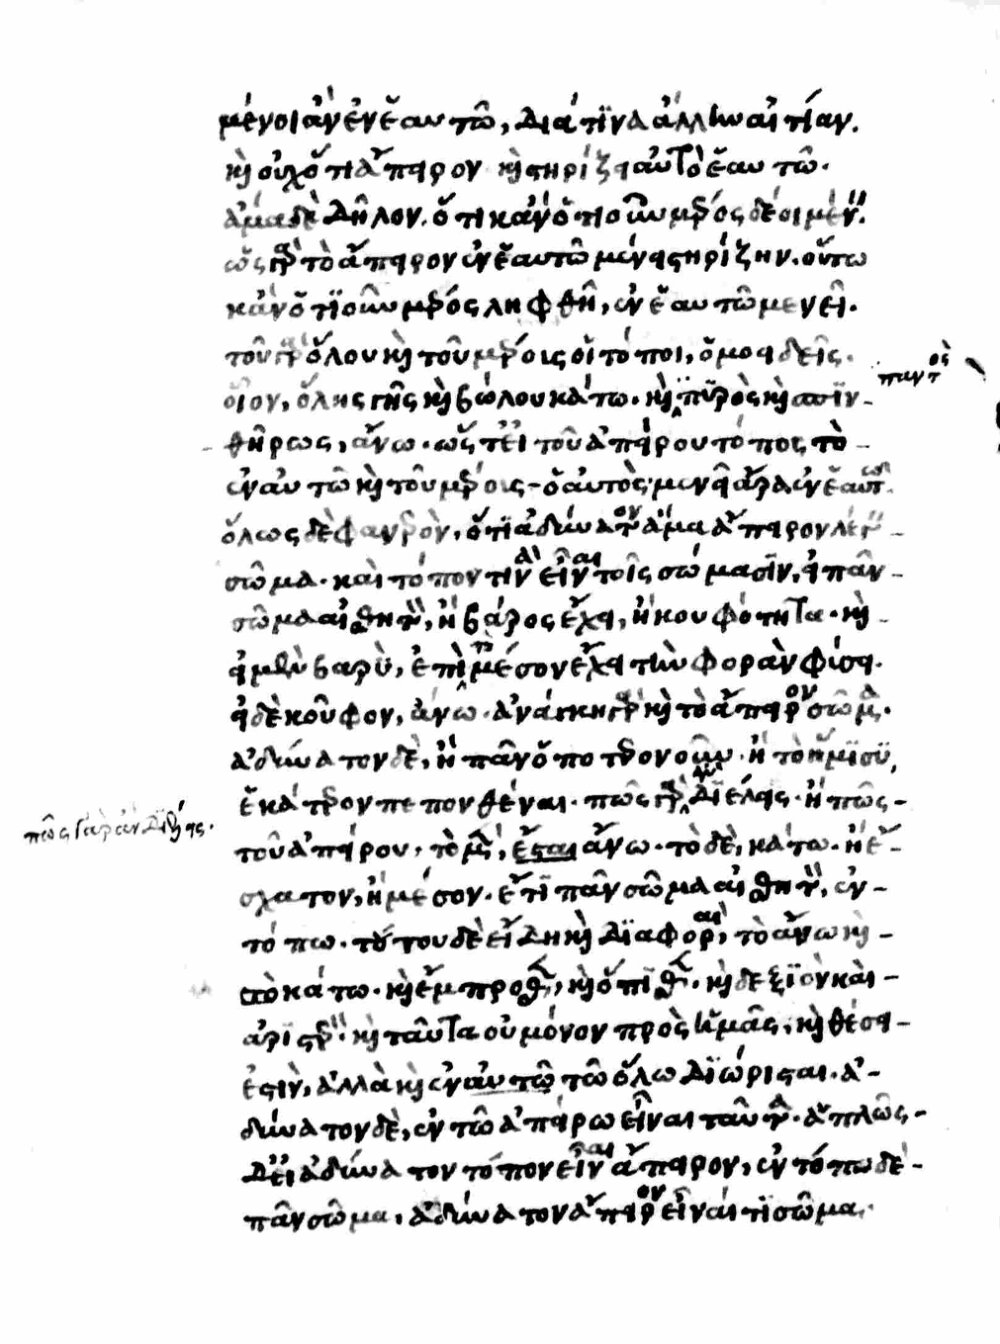 μένοι ἂν ἐν ἑαυτῶ, διά τινα ἄλλην αἰτίαν.
κὶ οὐχ ὅτι ἄπειρον κὶ στηρίζει αὐτὸ ἑαυτῶ.
ἅμα δὲ δῆλον. ὅτι κἂν ὁτιοῦν μέρος δέοι μένειν.
ὡς γὰρ τὸ ἄπειρον ἐν ἑαυτῶ μένει στηρίζην. οὕτω
κἂν ὁτιοῦν μέρος ληφθῆ, ἐν ἑαυτῶ μενεῖ.
τοῦ γὰρ ὅλου κὶ τοῦ μέροις οἱ τόποι, ὁμοειδεῖς.
οἷον, ὅλης γῆς κὶ βώλου κάτω. κὶ πυρὸς κὶ σπιν-
παντὸς
θῆρως, ἄνω. ὥστε εἰ τοῦ ἀπείρου τόπος τὸ
ἐν αὐτῶ κὶ τοῦ μέροις - ὁ αὐτὸς· μενεῖ ἄρα ἐν ἑαυτῶ.
ὅλως δὲ φανερὸν, ὅτι ἀδύνατον ἅμα ἄπειρον λέγειν
σῶμα. καὶ τόπον τινὰ εἶναι τοῖς σώμασιν, εἰ πᾶν
σῶμα αἰσθητὸν, ἢ βάρος ἔχει, ἢ κουφότητα. κὶ
εἰ μὲν βαρὺ, ἐπὶ τὸ μέσον ἔχει τὴν φορὰν φύσει.
εἰ δὲ κοῦφον, ἄνω. ἀνάγκη γὰρ κὶ τὸ ἄπειρον σῶμα.
ἀδύνατον δὲ, ἢ πᾶν ὁποτερονοῦν. ἢ τὸ ἥμισυ,
ἑκάτερον πεπονθέναι. πῶς γὰρ ἂν διέλης. ἢ πῶς
πῶς γὰρ ἂν διέλης.
τοῦ ἀπείρου, τὸ μὲν, ἔσται ἄνω. τὸ δὲ, κάτω. ἢ ἔ-
σχατον, ἢ μέσον. ἔτι πᾶν σῶμα αἰσθητὸν, ἐν
τόπω. τόπου δὲ εἴδη κὶ διαφοραὶ, τὸ ἄνω κὶ
τὸ κάτω. κὶ ἔμπροσθεν, κὶ ὄπισθεν. κὶ δεξιὸν καὶ
ἀριστερόν. κὶ ταῦτα οὐ μόνον πρὸς ἡμᾶς, κὶ θέσει
ἐστὶν, ἀλλὰ κὶ ἐν αὐτῶ τῶ ὅλω διώρισται. ἀ-
δύνατον δὲ, ἐν τῶ ἀπείρω εἶναι ταῦτα. ἁπλῶς
δὲ εἰ ἀδύνατον τόπον εἶναι ἄπειρον, ἐν τόπω δὲ
πᾶν σῶμα, ἀδύνατον ἄπειρον εἶναί τι σῶμα.